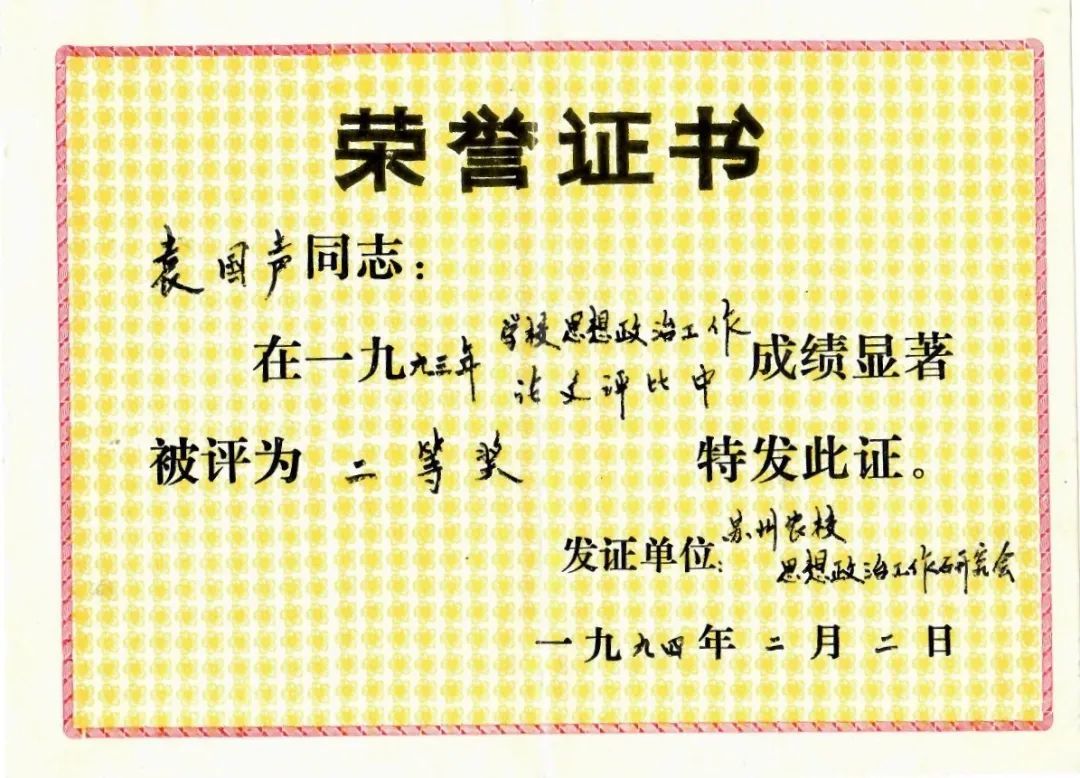 荣誉证书
袁国声同志：
在一九九三年学校思想政治工作论文评比中成绩显著
被评为二等奖 特发此证。
发证单位：苏州农校
思想政治工作研究会
一九九四年二月二日